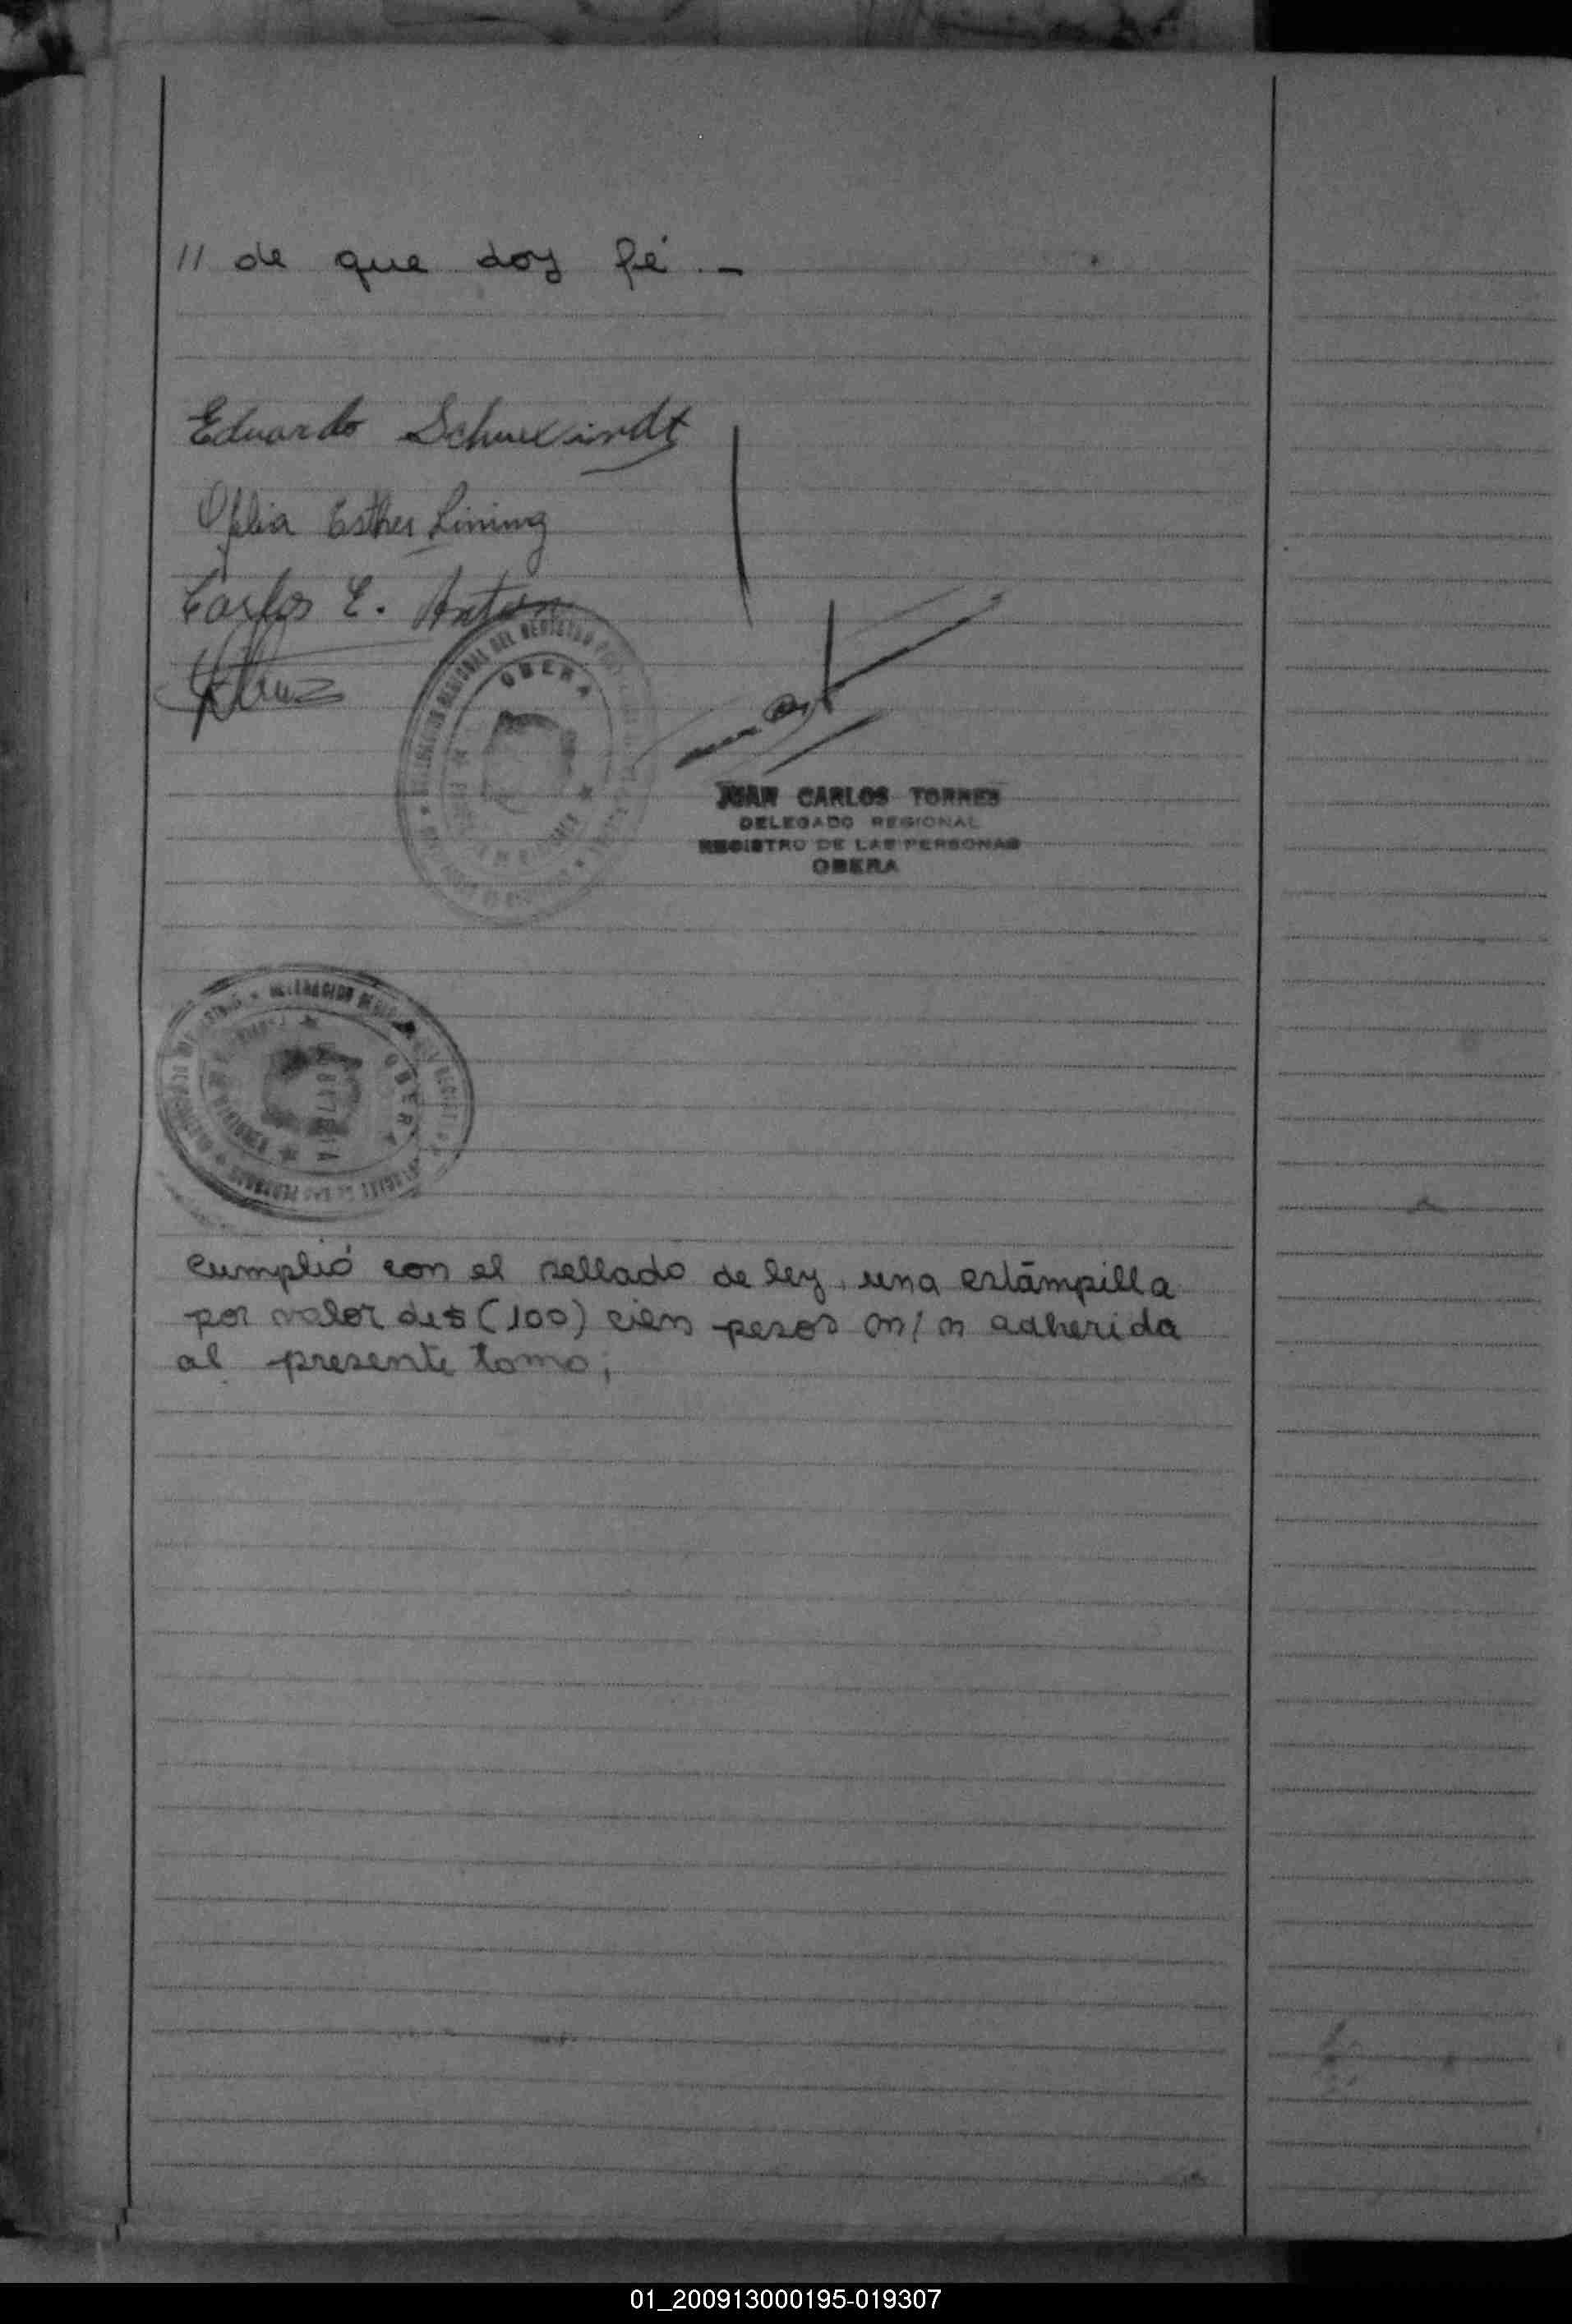 // de que doy fé. -
Eduardo Schweindt
Ofelia Esther Lining
Carlos E. Anton
OBERA
JUAN CARLOS TORRES
DELEGADO REGIONAL
REGISTRO DE LAS PERSONAS
OBERA
OBERA
Cumplió con el sellado de ley, una estampilla
por valor de $ (100) cien pesos m/n adherida
al presente tomo,
01_200913000195-019307